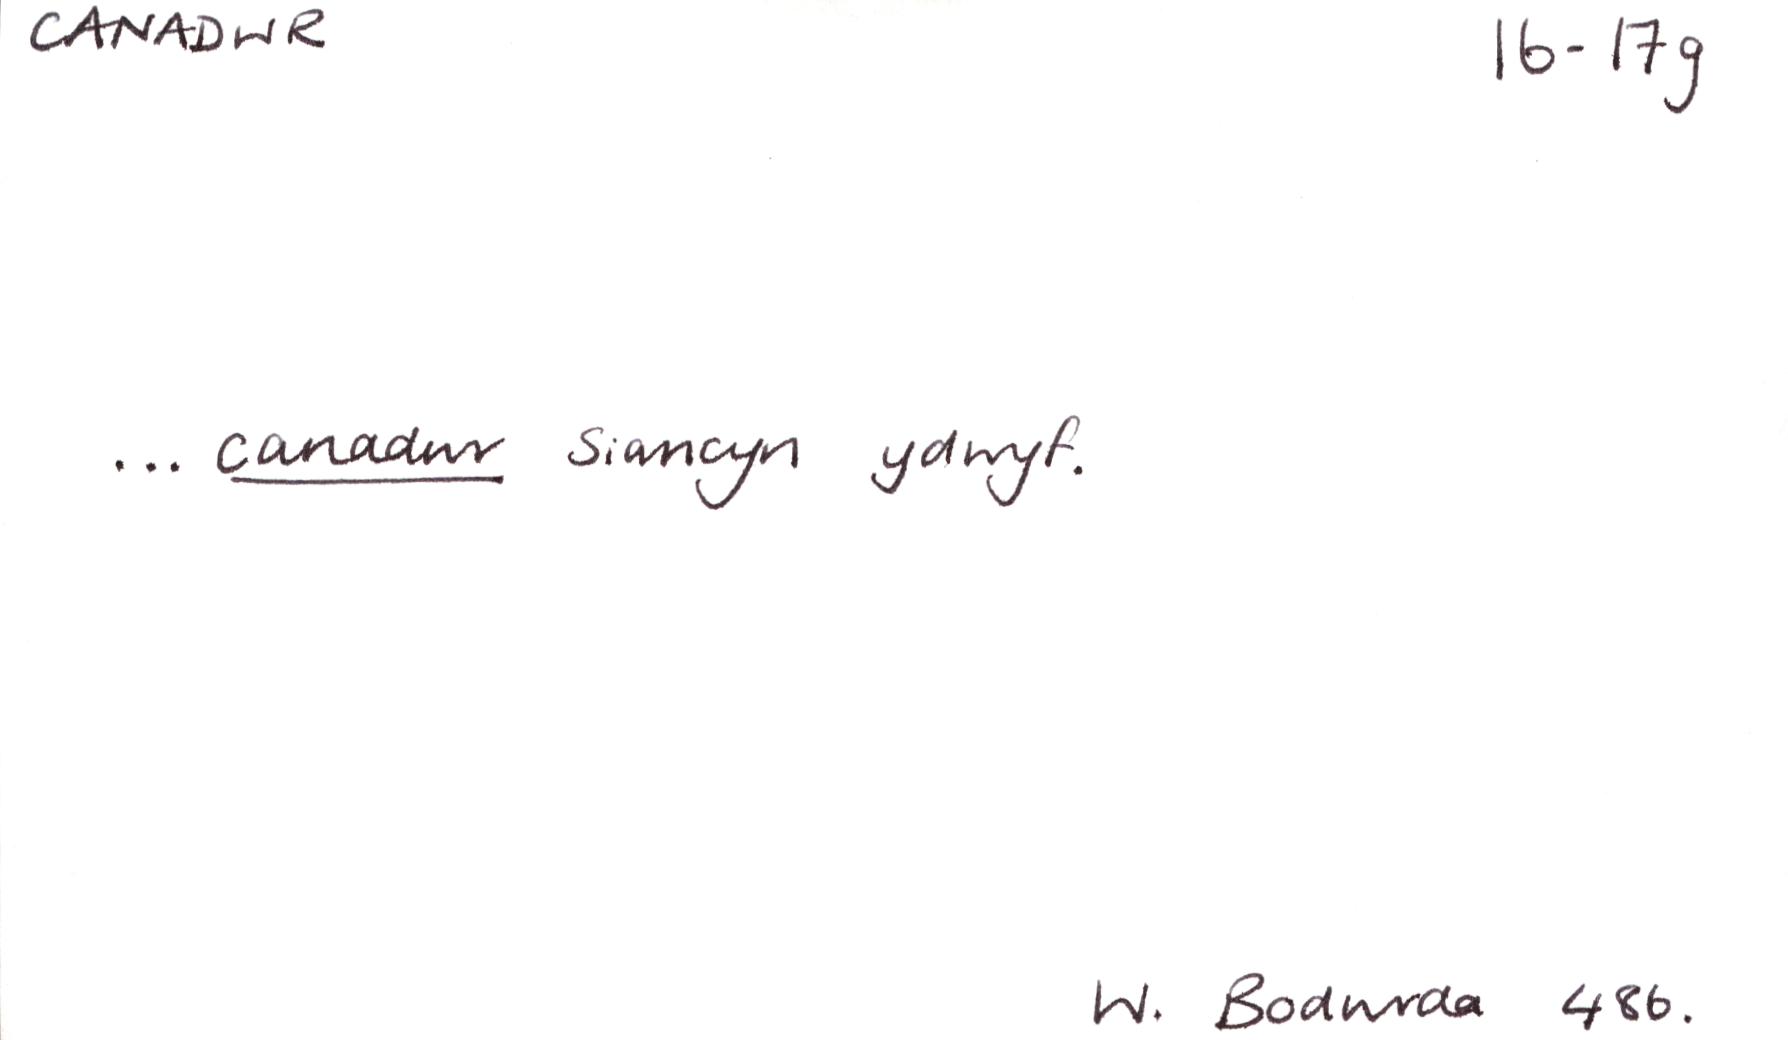 CANADWR 16-17g
... canadwr Siancyn ydwyf.
W. Bodwrda 486.